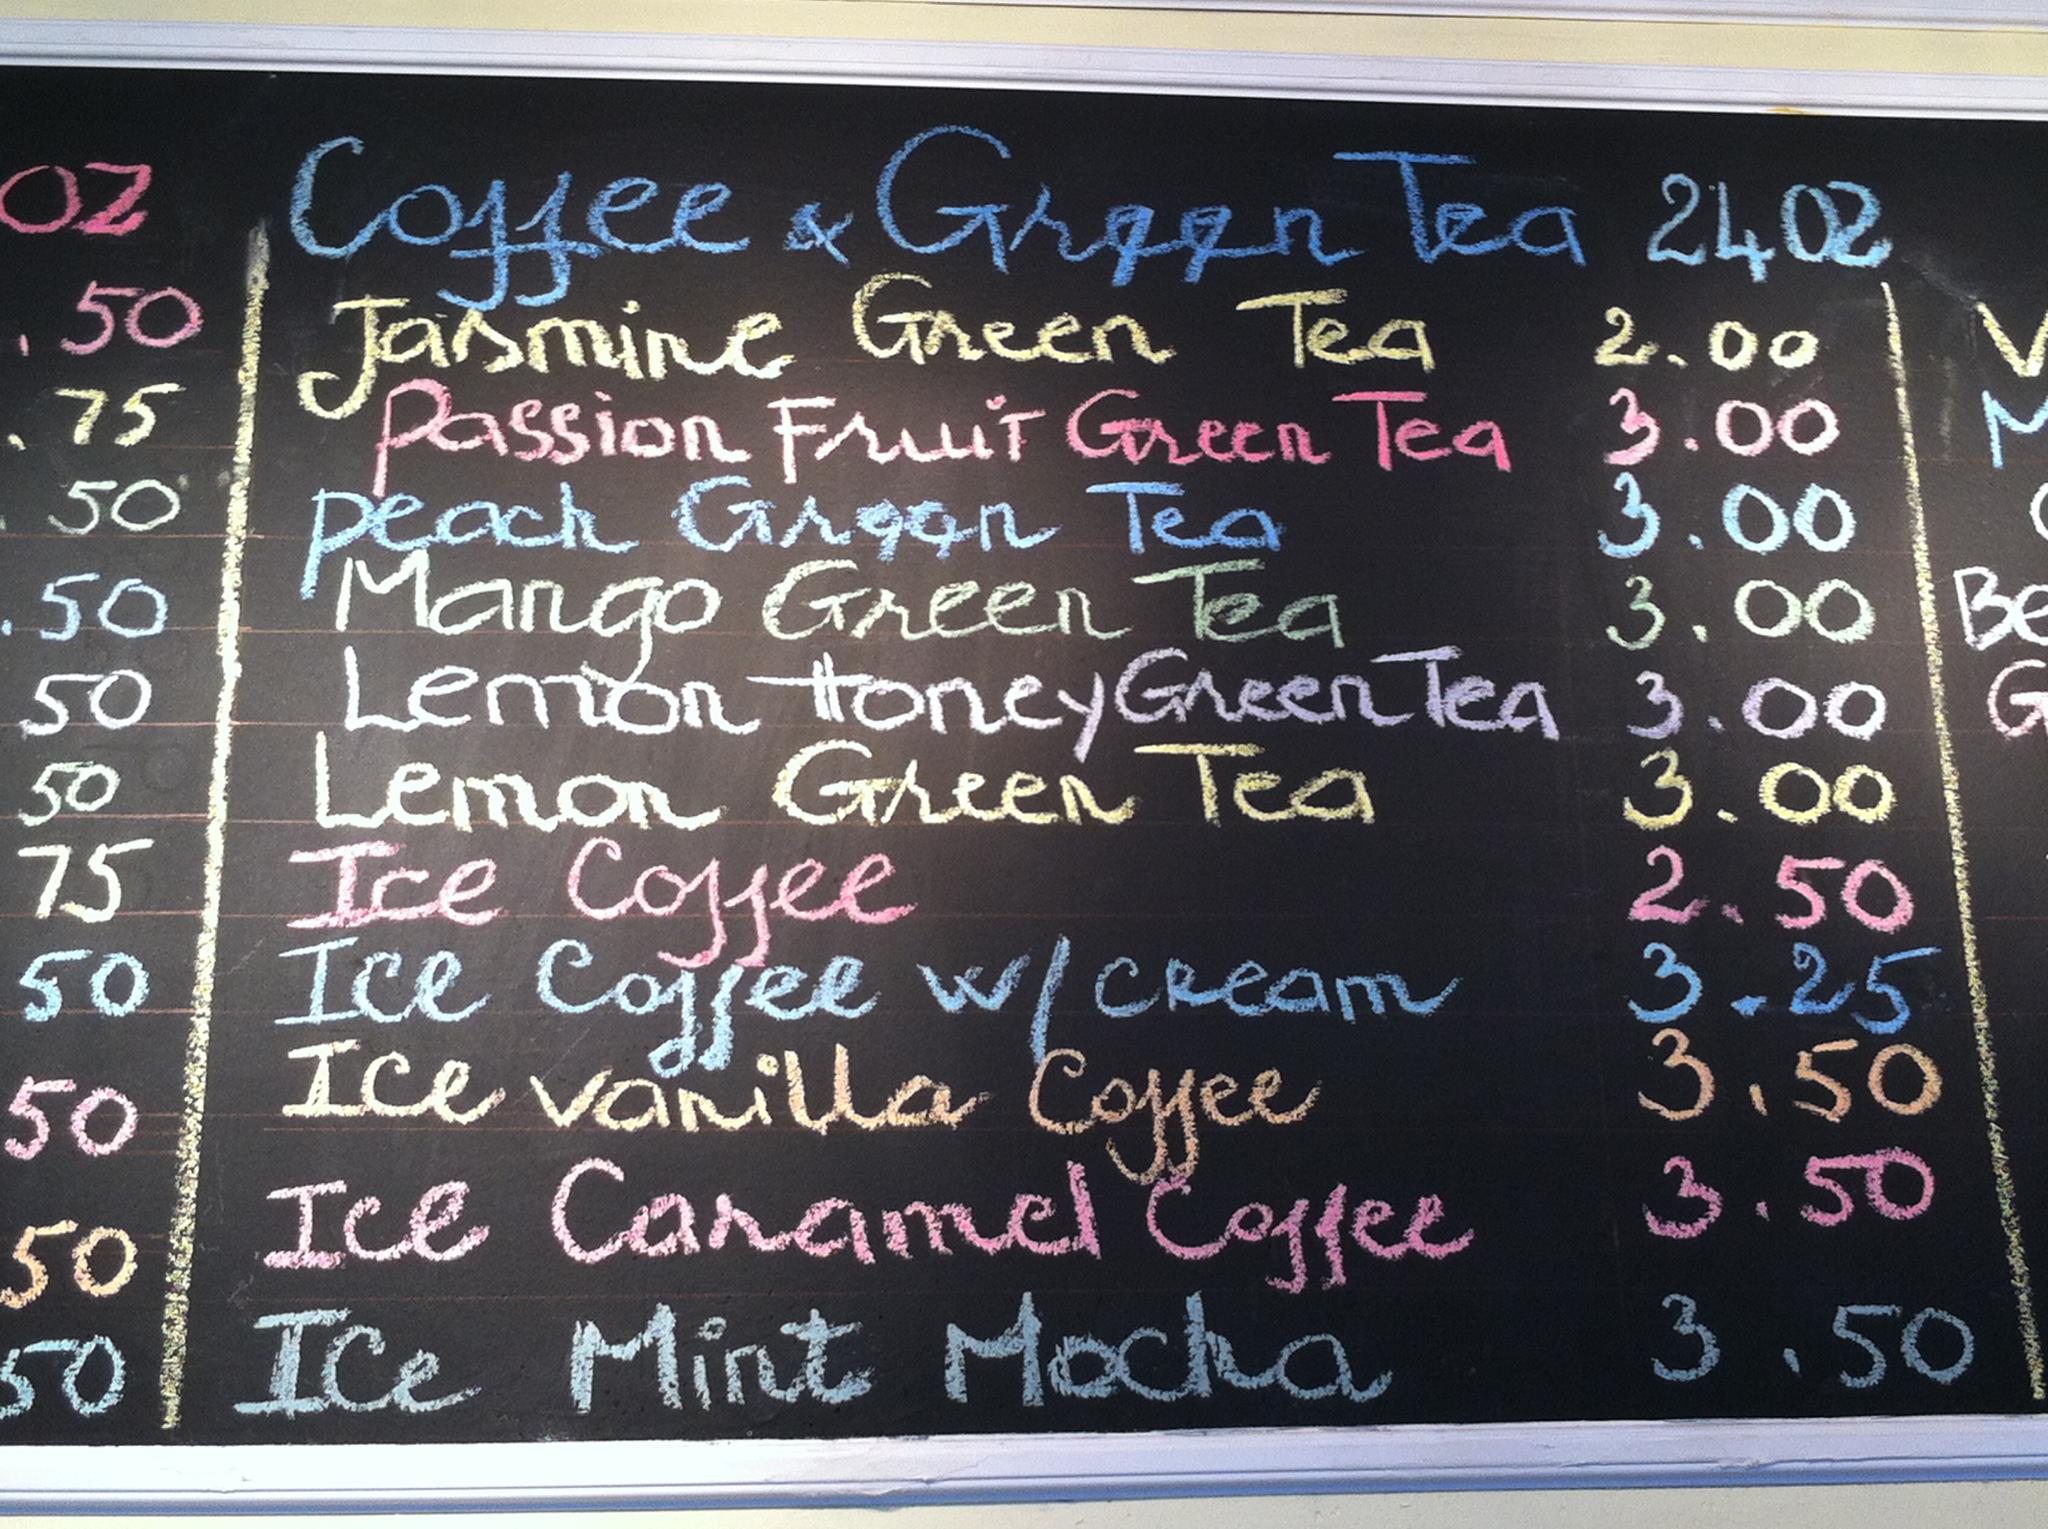 OZ
.50
.75
.50
.50
50
50
75
50
50
50
50
Coffee & Green Tea 24OZ
Jasmine Green Tea 2.00
Passion Fruit Green Tea 3.00
peach Green Tea 3.00
Mango Green Tea 3.00
Lemon Honey Green Tea 3.00
Lemon Green Tea 3.00
Ice Coffee 2.50
Ice Coffee w/ cream 3.25
Ice vanilla Coffee 3.50
Ice Caramel Coffee 3.50
Ice Mint Mocha 3.50
V
M
Be
G